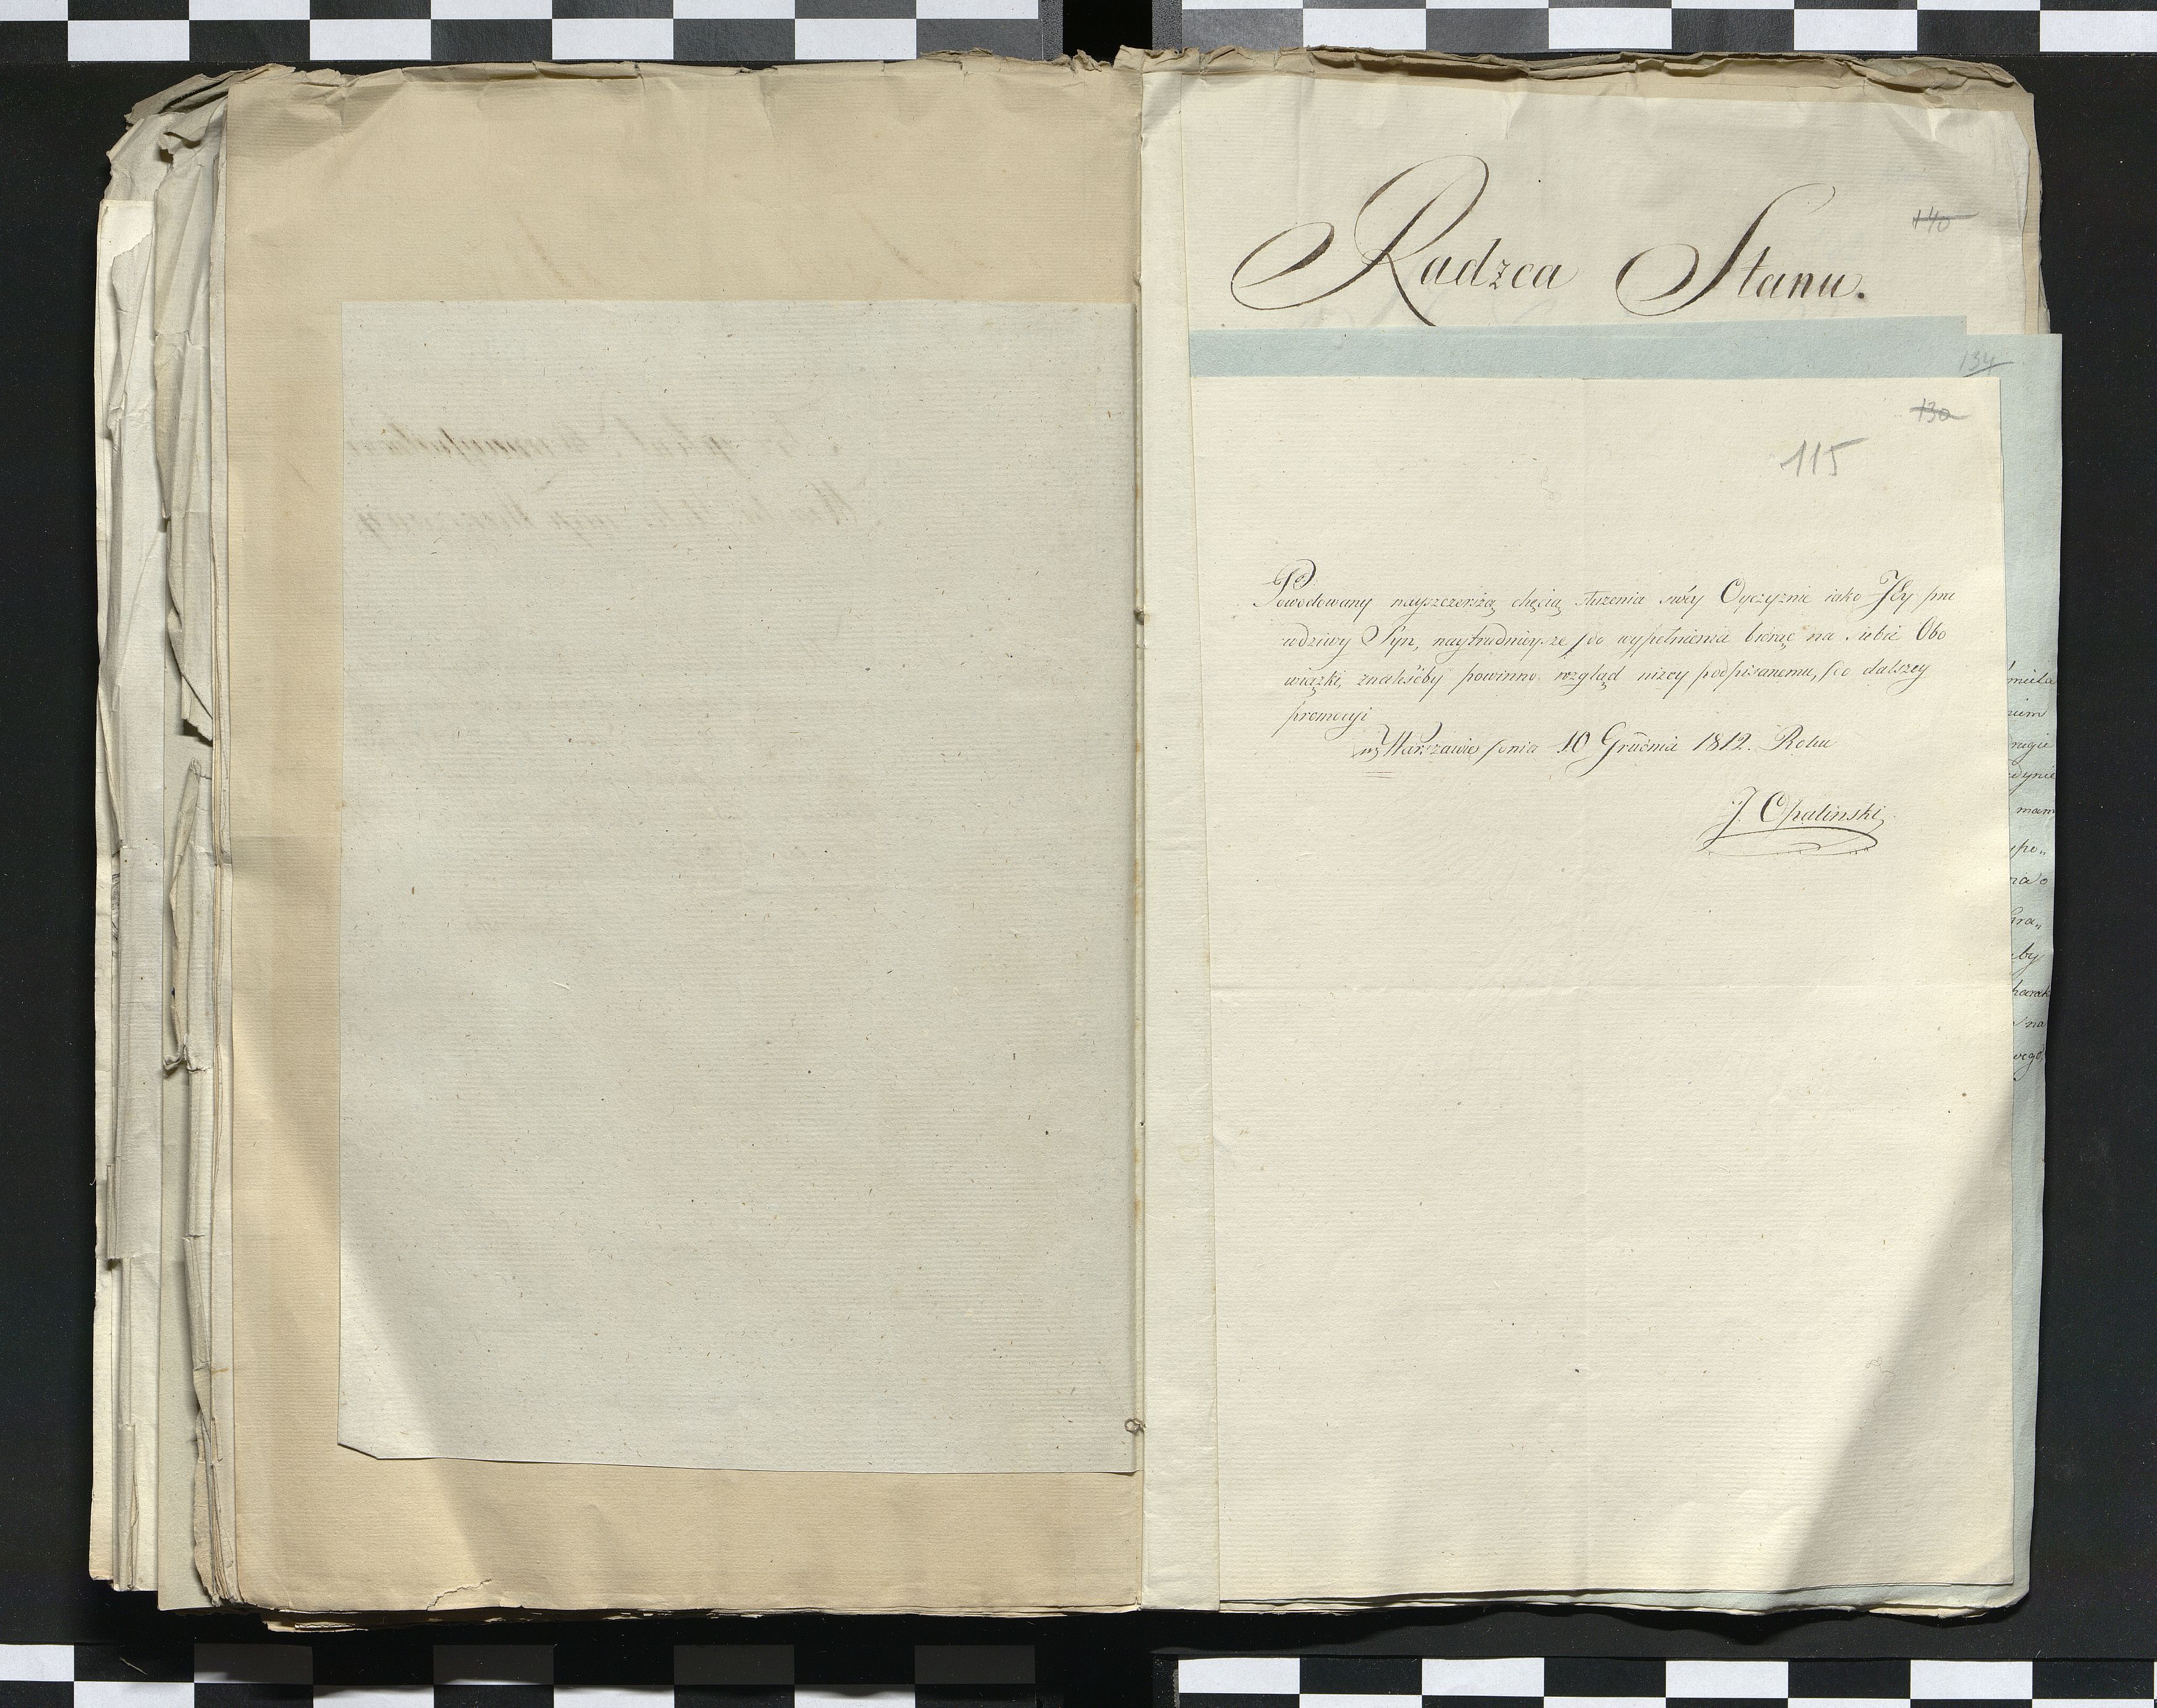 140
Radzca Stanu.
134
130
115
Powodowany nayszczerszą chęcią służenia swéy Oyczyznie iako Jéy pra
wdziwy Syn, naytrudnieysze do wypełnienia biorąc na siebie Obo
wiązki, znaleśćby powinno wzgląd niżey podpisanemu, do dalszey
promocyi
w Warszawie dnia 10 Grudnia 1812. Roku
J. Opalinski
mam
by
na